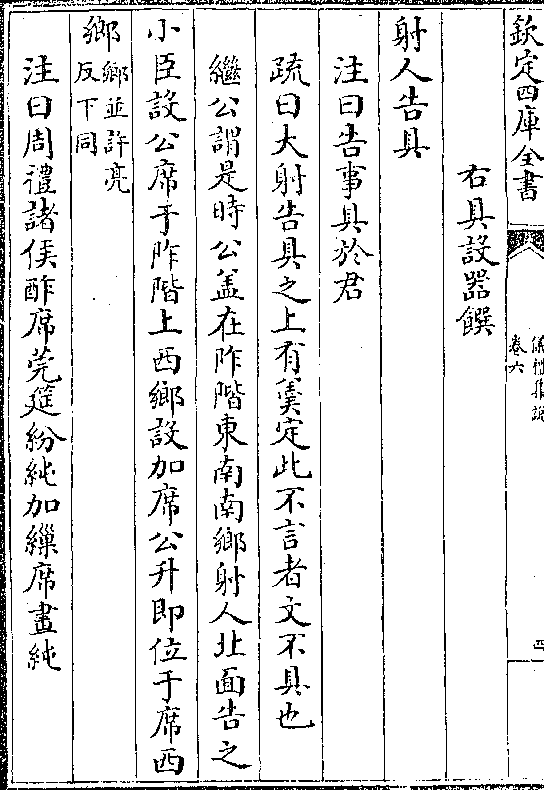 欽定四庫全書
儀禮集說
卷六
四
右具設器饌
射人告具
注曰告事具於君
疏曰大射告具之上有羮定此不言者文不具也
繼公謂是時公盖在阼階東南南鄉射人北面告之
小臣設公席于阼階上西鄉設加席公升即位于席西
鄉鄉並許亮
反下同
注曰周禮諸侯酢席莞筵紛純加繅席畫純